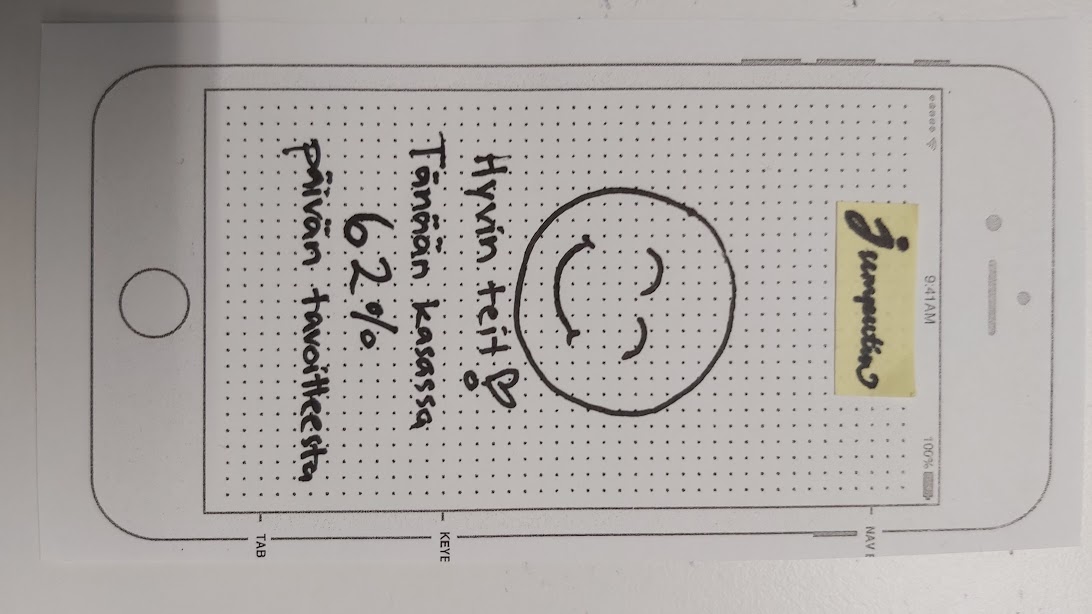 9:41AM
100%
jumputin
Hyvin teit!
Tänään kasassa
62%
päivän tavoitteesta
NAV
KEYE
TAB